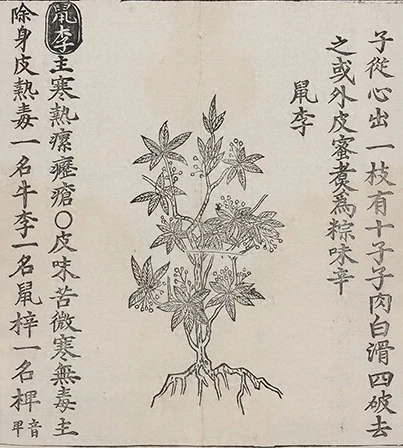 子從心出一枝有十子子肉白滑四破去
之或外皮蜜煑為粽味辛
鼠李
鼠李主寒熱瘰癧瘡○皮味苦微寒無毒主
除身皮熱毒一名牛李一名鼠梓一名椑音卑